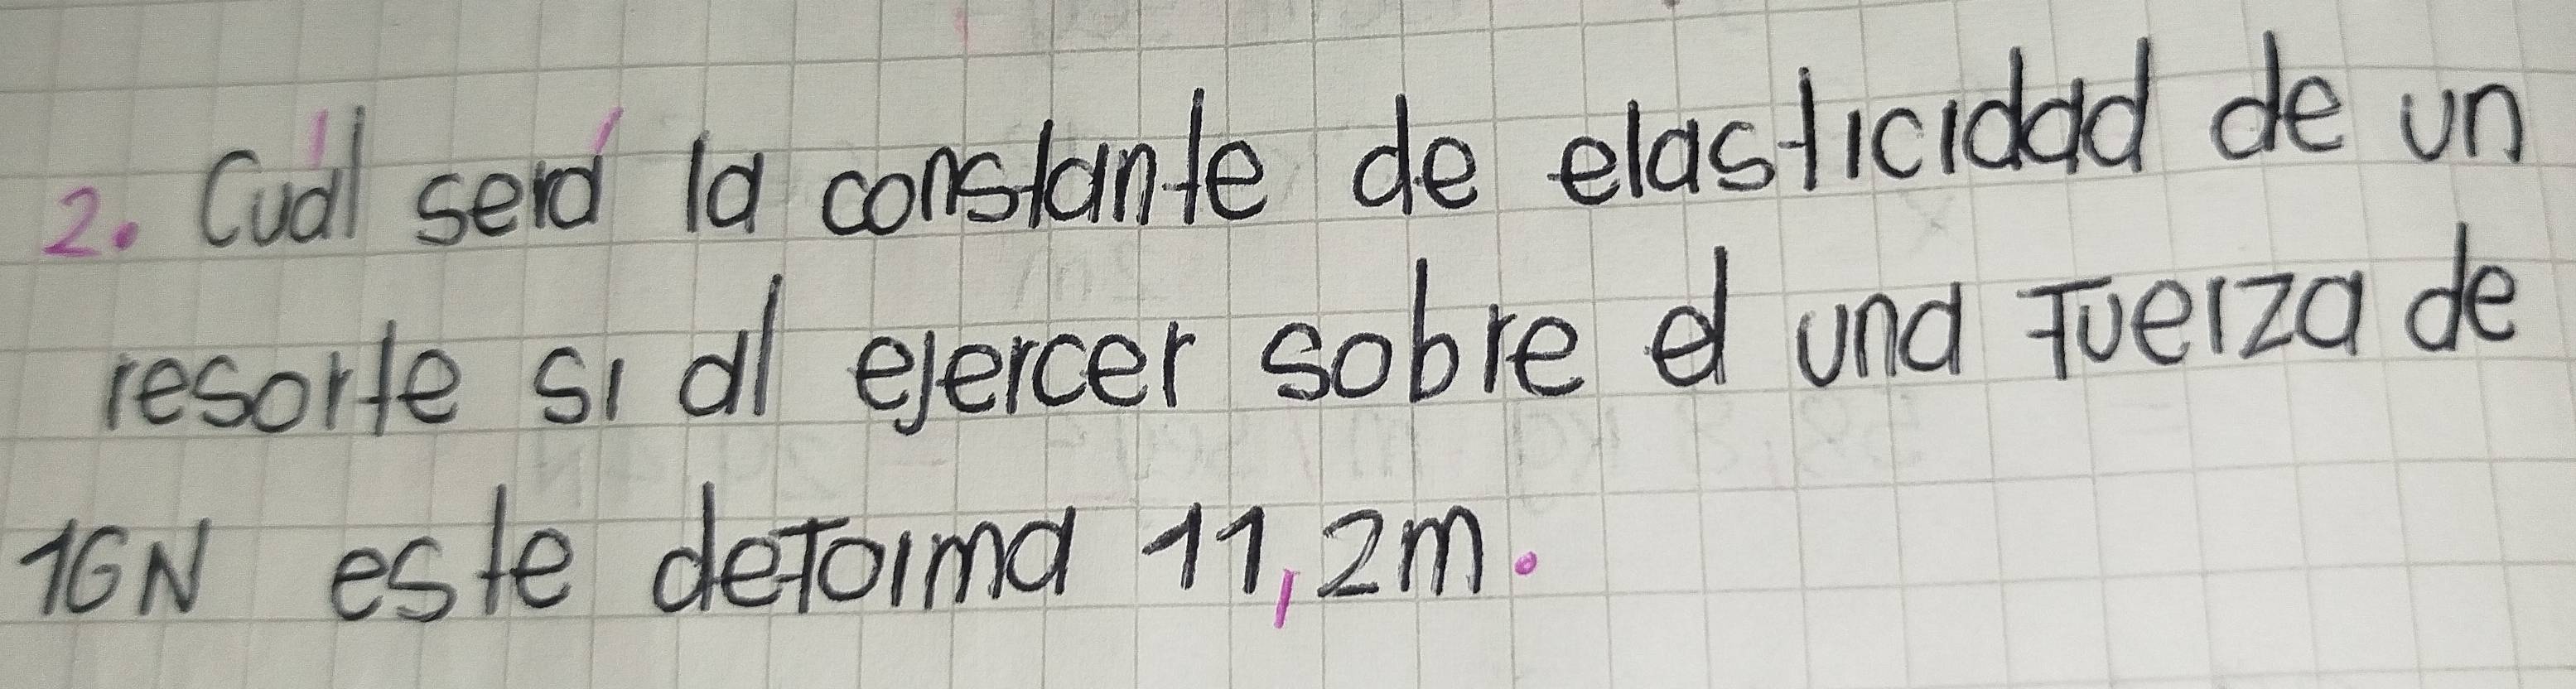 2. Cuál será la constante de elasticidad de un
resorte si al ejercer sobre el una fuerza de
16N este deforma 11,2m.